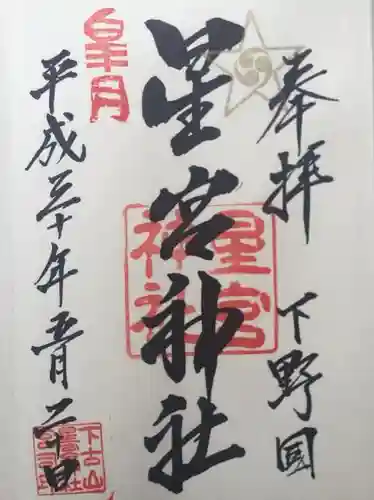 奉拝 下野国
星宮神社
星宮神社
皐月
平成三十年五月二十日
下古山